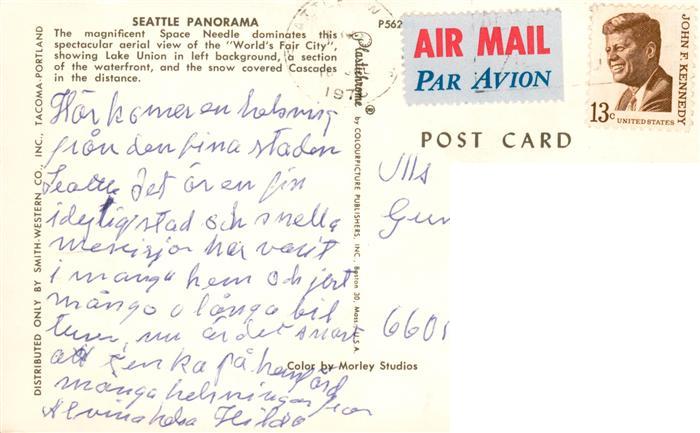 SEATTLE PANORAMA
The magnificent Space Needle dominates this
spectacular aerial view of the "World's Fair City",
showing Lake Union in left background, a section
of the waterfront, and the snow covered Cascades
in the distance.
P562
DISTRIBUTED ONLY BY SMITH-WESTERN CO., INC., TACOMA-PORTLAND
Plastichrome ® BY COLOURPICTURE PUBLISHERS, INC., Boston 30, Mass., U.S.A.
Här komer en helsning
från den fina staden
Seattle det är en fin
idylig stad och snella
meniscjor har varit
i manga hem och jort
mångo o långa bil
turer, nu är det snart
att tenka på hemfärd
många helsningar från
Alvina Hilda
AIR MAIL
PAR AVION
JOHN F. KENNEDY
13c
UNITED STATES
POST CARD
Color by Morley Studios